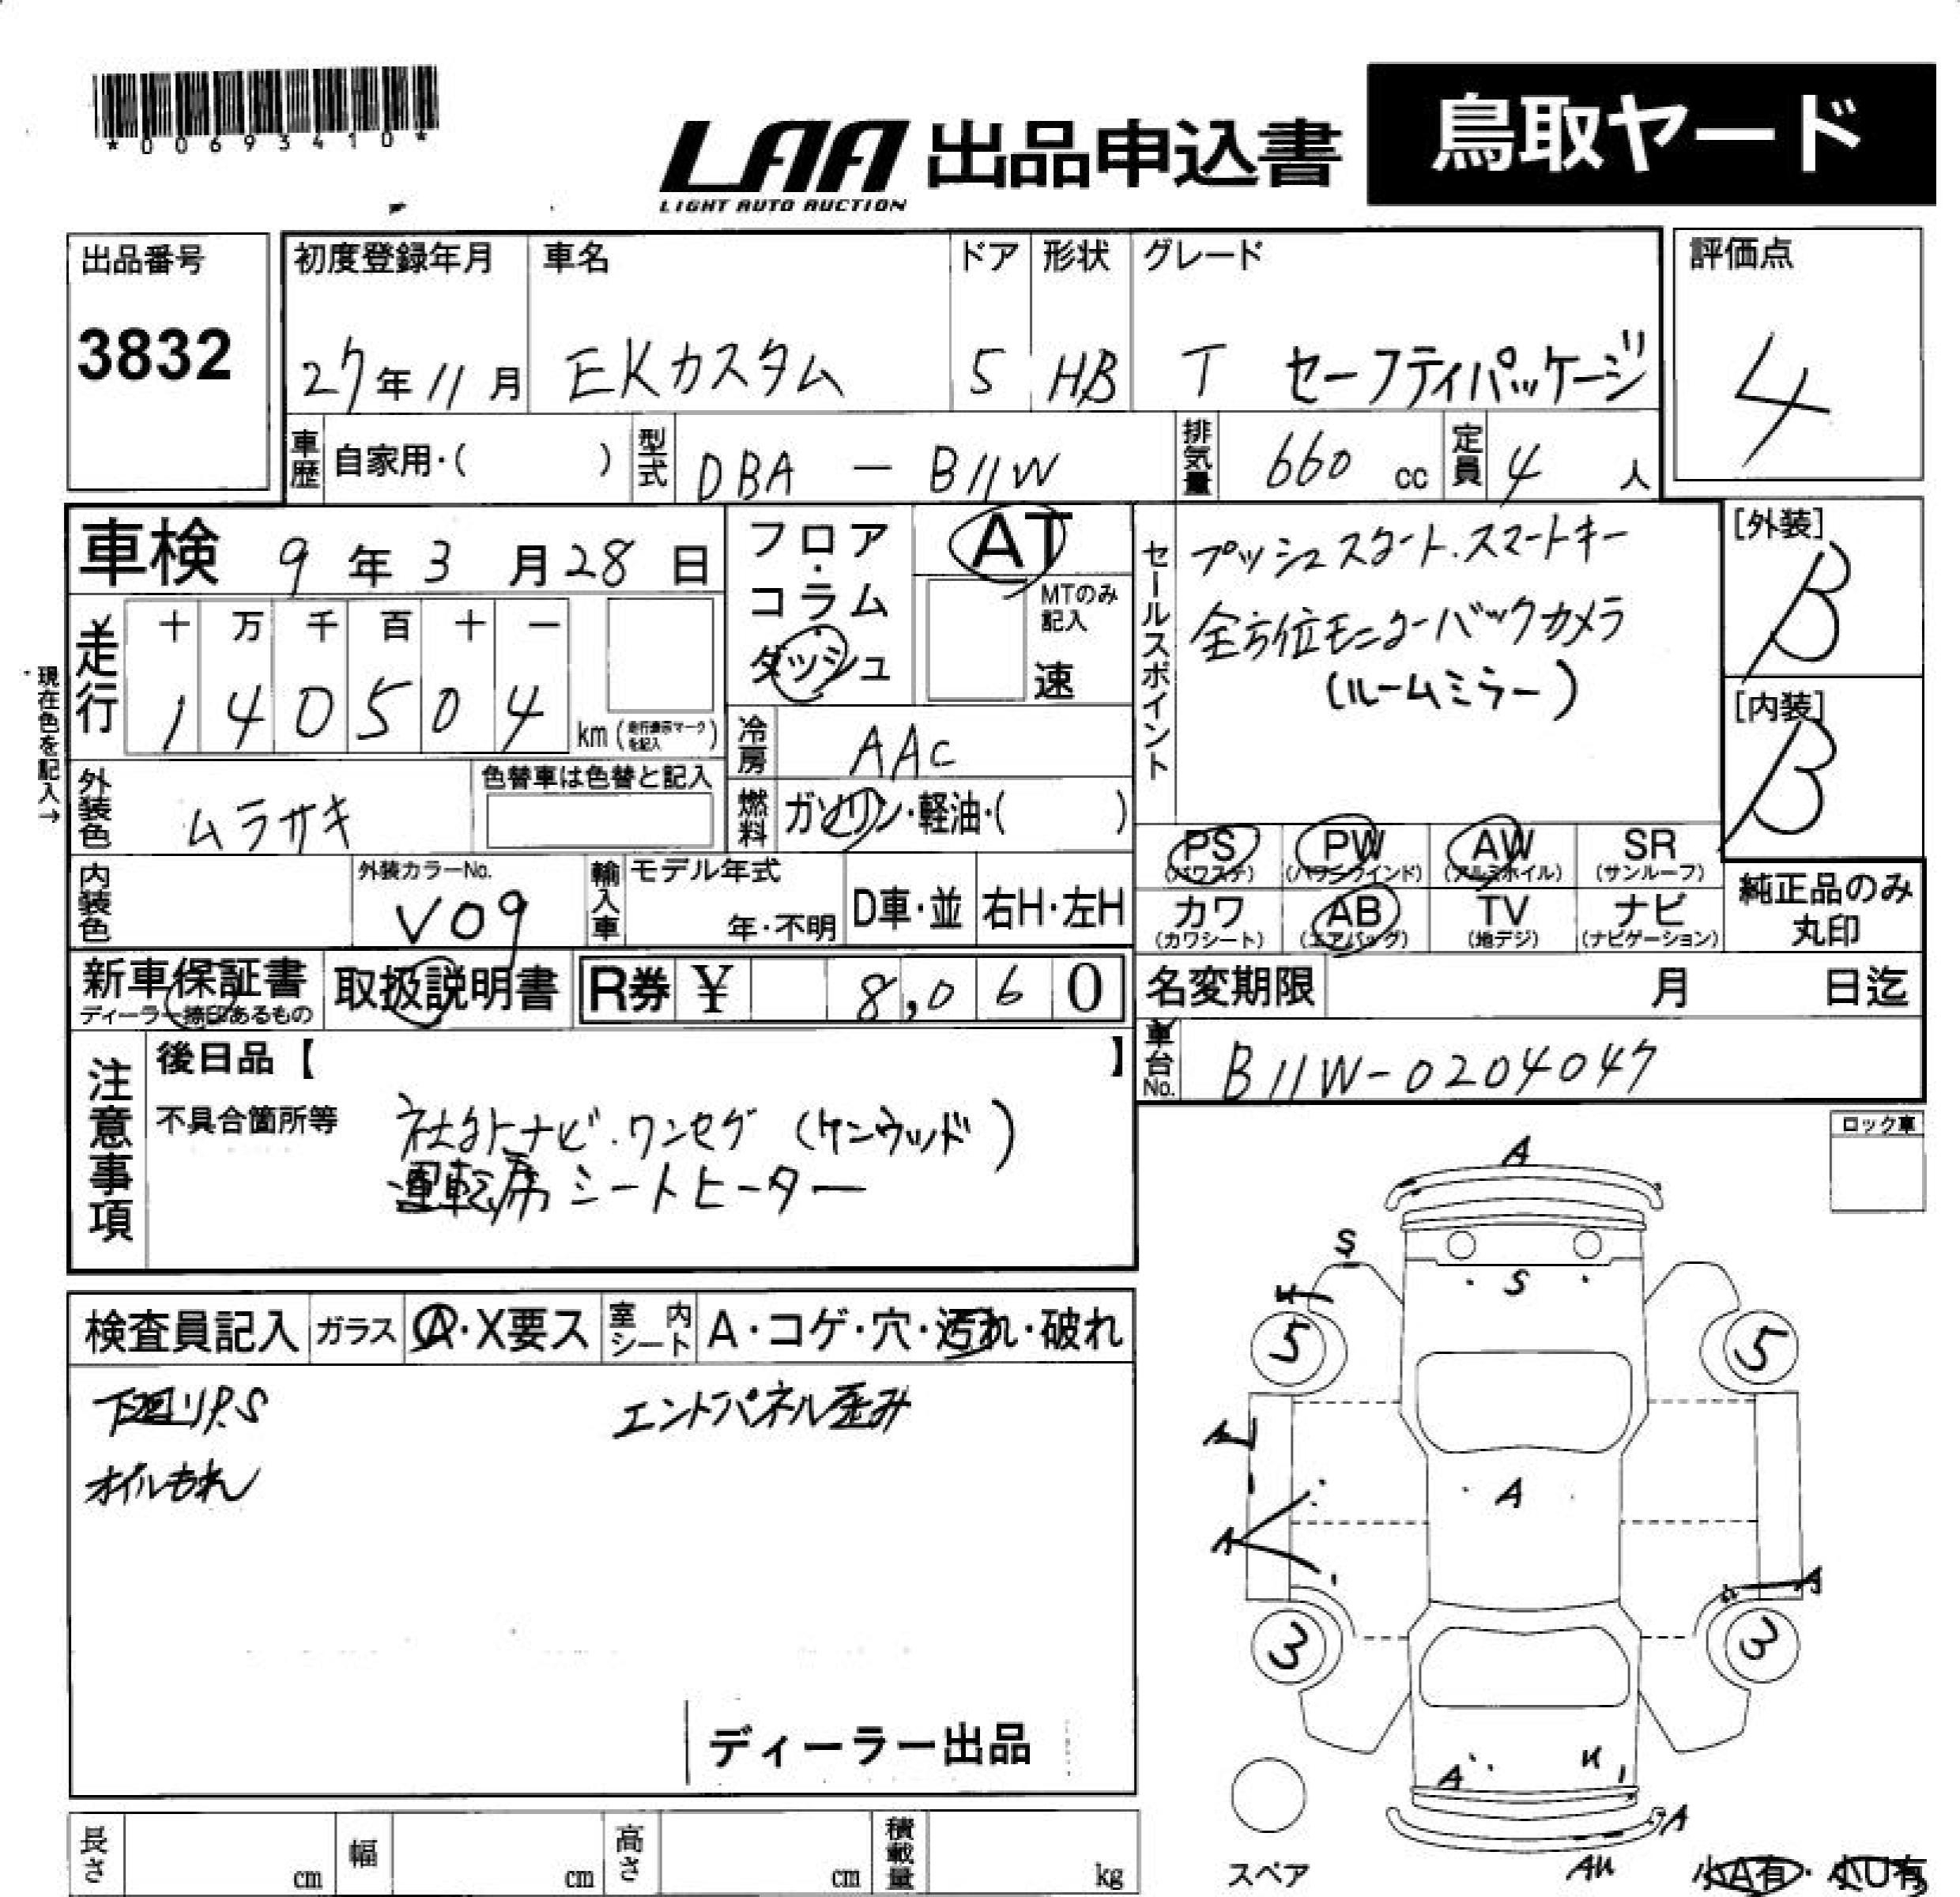 *00693410*
LAA 出品申込書 鳥取ヤード
LIGHT AUTO AUCTION
出品番号
3832
初度登録年月 車名 ドア 形状 グレード
27年11月 EKカスタム 5 HB T セーフティパッケージ
評価点
4
車歴 自家用・( ) 型式 DBA - B11W 排気量 660 cc 定員 4 人
車検 9年3月28日
フロア・コラム・ダッシュ
AT
MTのみ記入
速
セールスポイント
プッシュスタート.スマートキー
全方位モニターバックカメラ
(ルームミラー)
[外装]
B
[内装]
B
走行
十 万 千 百 十 一
1 4 0 5 0 4
km (走行表示マークを記入)
現在色を記入→
冷房 AAC
外装色 ムラサキ
色替車は色替と記入
燃料 ガソリン・軽油・( )
PS (パワステ) PW (パワーウインド) AW (アルミホイル) SR (サンルーフ)
カワ (カワシート) AB (エアバッグ) TV (地デジ) ナビ (ナビゲーション)
純正品のみ
丸印
内装色
外装カラーNo.
V09
輸入車 モデル年式
年・不明 D車・並 右H・左H
新車保証書
ディーラー捺印あるもの
取扱説明書 R券 ¥ 8,060
名変期限 月 日迄
車台No. B11W-0204047
注意事項
後日品【 】
不具合箇所等
社外ナビ.ワンセグ (ケンウッド)
運転席シートヒーター
ロック車
検査員記入 ガラス A・X要ス 室内シート A・コゲ・穴・汚れ・破れ
下廻りP.S エンドパネル歪み
オイルもれ
ディーラー出品
A
S
S
U
5 5
A
A
A
A
3 3
A U
A
AU
スペア
小A有・小U有
長さ cm 幅 cm 高さ cm 積載量 kg